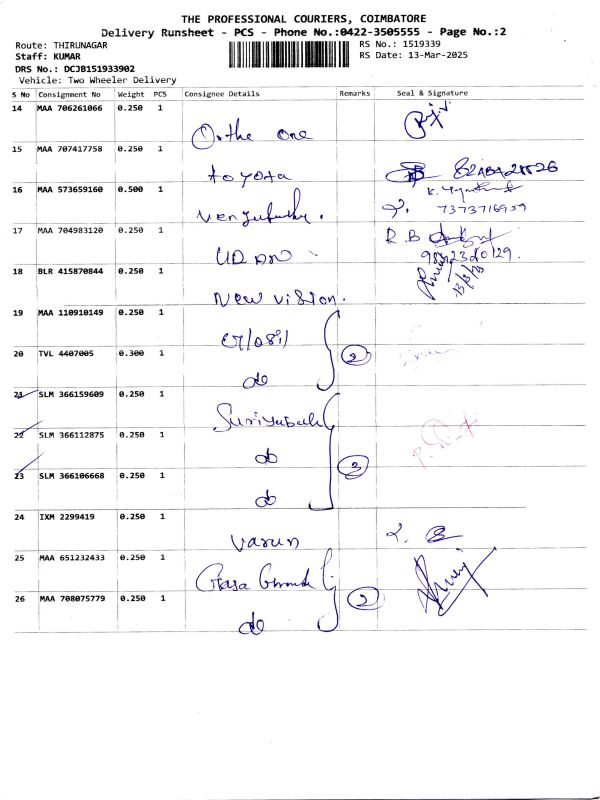 THE PROFESSIONAL COURIERS, COIMBATORE
Delivery Runsheet - PCS - Phone No.:0422-3505555 - Page No.:2
Route: THIRUNAGAR RS No.: 1519339
Staff: KUMAR RS Date: 13-Mar-2025
DRS No.: DCJB151933902
Vehicle: Two Wheeler Delivery
S No Consignment No Weight PCS Consignee Details Remarks Seal & Signature
14 MAA 706261066 0.250 1
O. the one
15 MAA 707417758 0.250 1
toyota
16 MAA 573659160 0.500 1
17 MAA 704983120 0.250 1
R.B
UDAN
18 BLR 415870844 0.250 1
13/3/25
New vision.
19 MAA 110910149 0.250 1
20 TVL 4407005 0.300 1
2
do
21 SLM 366159609 0.250 1
22 SLM 366112875 0.250 1
do
3
23 SLM 366106668 0.250 1
do
24 IXM 2299419 0.250 1
Varun
25 MAA 651232433 0.250 1
26 MAA 708075779 0.250 1
2
do